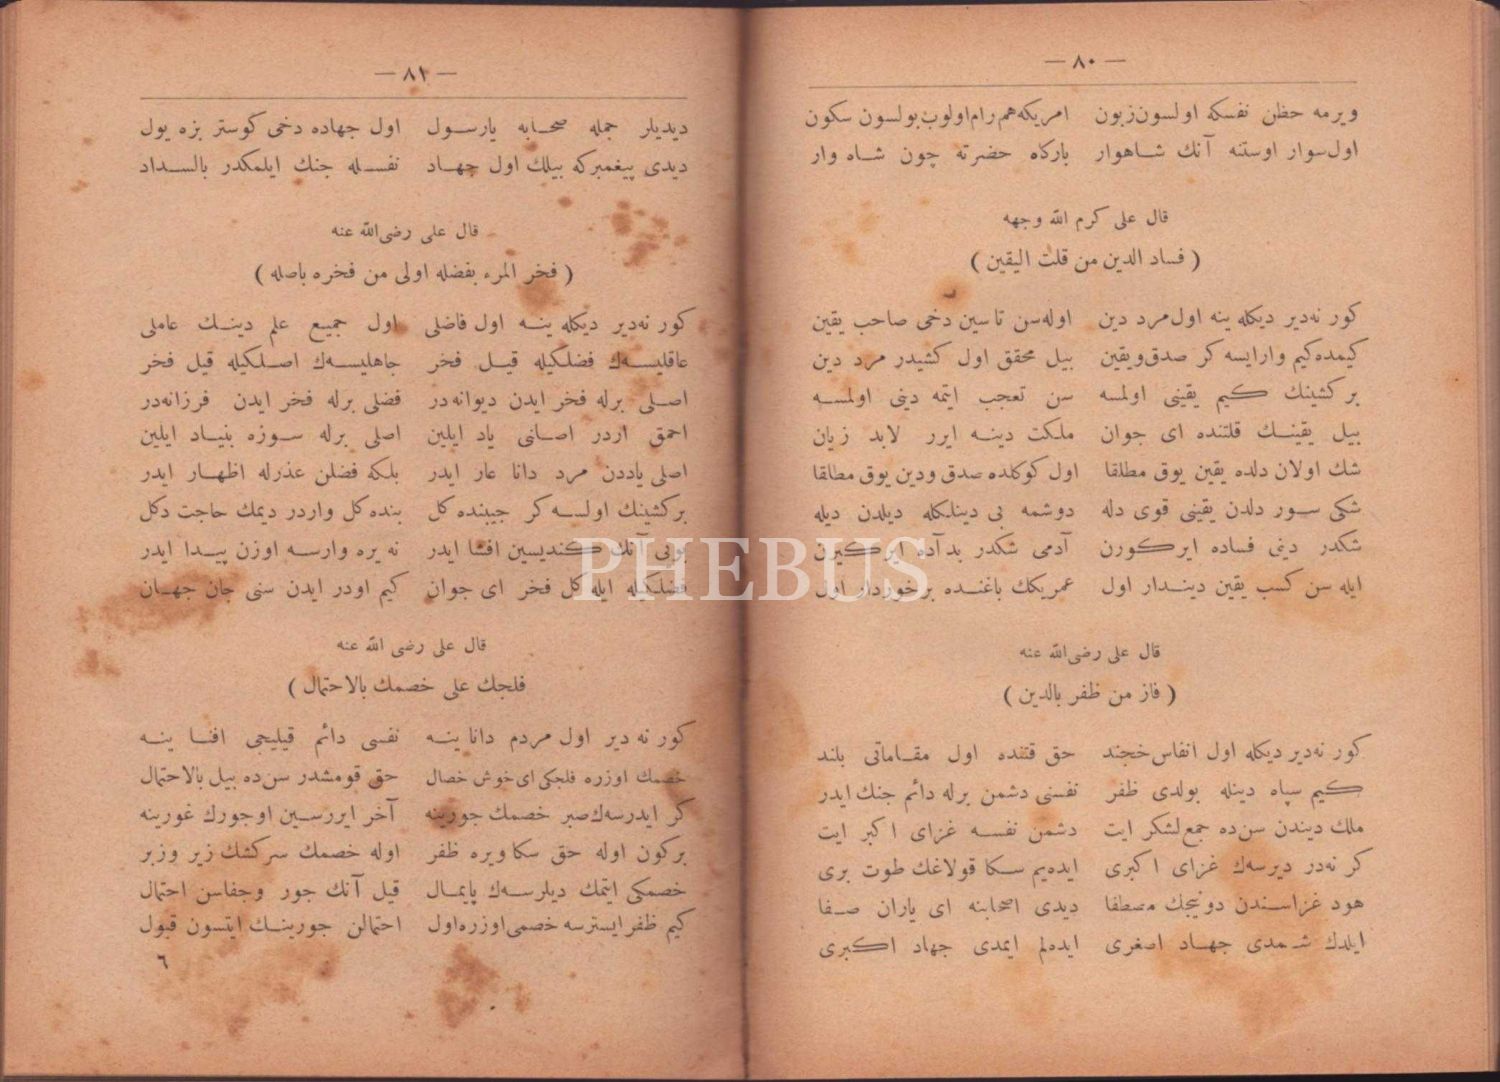 — ٨٠ —
ويرمه حظن نفسكه اولسون زبون امريكه هم رام اولوب بولسون سكون
اول سوار اوستنه آنك شاهوار باركاه حضرته چون شاه وار
قال على كرم الله وجهه
( فساد الدين من قلت اليقين )
كور نه دير ديكله ينه اول مرد دين اوله سن تا سين دخى صاحب يقين
كيمده كيم وار ايسه كر صدق ويقين بيل محقق اول كشيدر مرد دين
بر كشينك كيم يقينى اولمسه سن تعجب ايتمه دينى اولمسه
بيل يقينك قلتنده اى جوان ملكت دينه ايرر لابد زيان
شك اولان دلده يقين يوق مطلقا اول كوكلده صدق ودين يوق مطلقا
شكى سور دلدن يقينى قوى دله دوشمه بى دينلكله ديلدن ديله
شكدر دينى فساده ايركورن آدمى شكدر بد آده ايركيرن
ايله سن كسب يقين ديندار اول عمريكك باغنده برخوردار اول
قال على رضى الله عنه
( فاز من ظفر بالدين )
كور نه دير ديكله اول انفاس خجند حق قتنده اول مقاماتى بلند
كيم سپاه دينله بولدى ظفر نفسنى دشمن برله دائم جنك ايدر
ملك ديندن سن ده جمع لشكر ايت دشمن نفسه غزاى اكبر ايت
كر نه در ديرسه ك غزاى اكبرى ايده يم سكا قولاغك طوت برى
هود غزاسندن دونيجك مصطفا ديدى اصحابنه اى ياران صفا
ايلدك شمدى جهاد اصغرى ايده لم ايمدى جهاد اكبرى
— ٨١ —
ديديلر جمله صحابه يارسول اول جهاده دخى كوستر بزه يول
ديدى پيغمبر كه بيلك اول جهاد نفسله جنك ايلمكدر بالسداد
قال على رضى الله عنه
( فخر المرء بفضله اولى من فخره باصله )
كور نه دير ديكله ينه اول فاضلى اول جميع علم دينك عاملى
عاقليسه ك فضلكيله قيل فخر جاهليسه ك اصلكيله قيل فخر
اصلى برله فخر ايدن ديوانه در فضلى برله فخر ايدن فرزانه در
احمق اردر اصلنى ياد ايلين اصلى برله سوزه بنياد ايلين
اصلى ياددن مرد دانا عار ايدر بلكه فضلن عذرله اظهار ايدر
بر كشينك اولسه كر جيبنده كل بنده كل واردر ديمك حاجت دكل
بويى آنك كنديسين افشا ايدر نه يره وارسه اوزن پيدا ايدر
فضلكيله ايله كل فخر اى جوان كيم اودر ايدن سنى جان جهان
قال على رضى الله عنه
فلجك على خصمك بالاحتمال )
كور نه دير اول مردم دانا ينه نفسى دائم قيليجى افنا ينه
خصمك اوزره فلجكى اى خوش خصال حق قومشدر سن ده بيل بالاحتمال
كر ايدرسه ك صبر خصمك جورينه آخر ايررسين اوجورك غورينه
بر كون اوله حق سكا ويره ظفر اوله خصمك سركشك زير وزبر
خصمكى ايتمك ديلرسه ك پايمال قيل آنك جور وجفاسن احتمال
كيم ظفر ايسترسه خصمى اوزره اول احتمالن جورينك ايتسون قبول
٦
PHEBUS